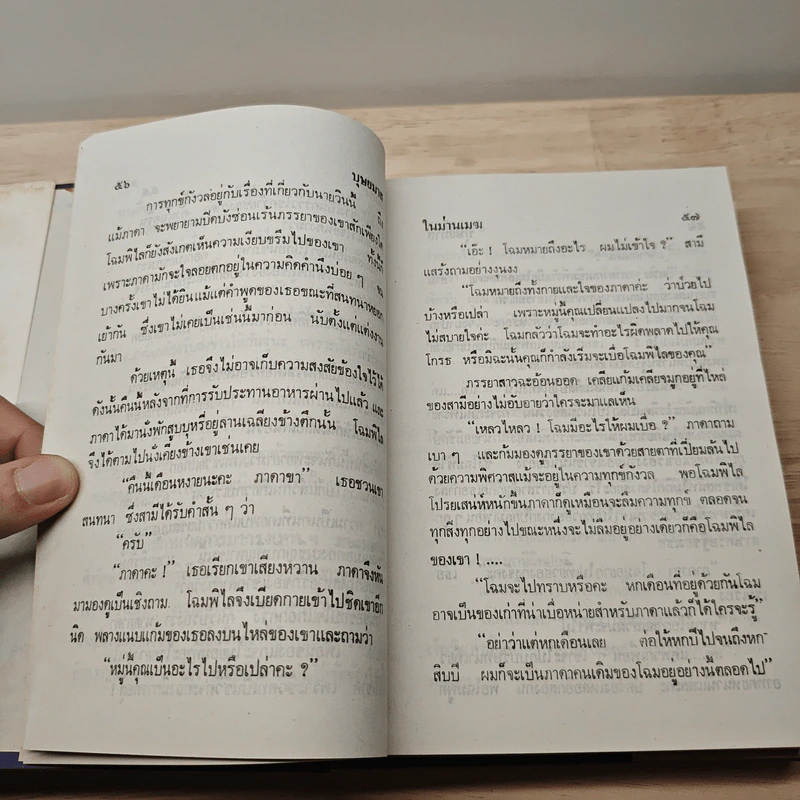 ๕๖ บุษยมาส
การทุกข์กังวลอยู่กับเรื่องที่เกี่ยวกับนายวินนี้ ถึง
แม้ภาดา จะพยายามปิดบังซ่อนเร้นภรรยาของเขาสักเพียงใด
โฉมพิไลก็ยังสังเกตเห็นความเงียบขรึมไปของเขา ทั้งนี้ก็
เพราะภาดามักจะใจลอยตกอยู่ในความคิดคำนึงบ่อย ๆ จน
บางครั้งเขาไม่ได้ยินแม้แต่คำพูดของเธอขณะที่สนทนาหยอก
เย้ากัน ซึ่งเขาไม่เคยเป็นเช่นนี้มาก่อน นับตั้งแต่แต่งงาน
กันมา
ด้วยเหตุนี้ เธอจึงไม่อาจเก็บความสงสัยข้องใจไว้ได้
ดังนั้นคืนนี้หลังจากที่การรับประทานอาหารผ่านไปแล้ว และ
ภาดาได้มานั่งพักสูบบุหรี่อยู่ลานเฉลียงข้างตึกนั้น โฉมพิไล
จึงได้ตามไปนั่งเคียงข้างเขาเช่นเคย
“คืนนี้เดือนหงายนะคะ ภาดาขา” เธอชวนเขา
สนทนา ซึ่งสามีได้รับคำสั้น ๆ ว่า
“ครับ”
“ภาดาคะ !” เธอเรียกเขาเสียงหวาน ภาดาจึงหัน
มามองดูเป็นเชิงถาม โฉมพิไลจึงเบียดกายเข้าไปชิดเขาอีก
นิด พลางแนบแก้มของเธอลงบนไหล่ของเขาและถามว่า
“หมู่นี้คุณเป็นอะไรไปหรือเปล่าคะ ?”
ในม่านเมฆ ๕๗
“เอ๊ะ ! โฉมหมายถึงอะไร ผมไม่เข้าใจ ?” สามี
แสร้งถามอย่างงุนงง
“โฉมหมายถึงทั้งกายและใจของภาดาค่ะ ว่าป่วยไป
บ้างหรือเปล่า เพราะหมู่นี้คุณเปลี่ยนแปลงไปมากจนโฉม
ไม่สบายใจค่ะ โฉมกลัวว่าโฉมจะทำอะไรผิดพลาดไปให้คุณ
โกรธ หรือมิฉะนั้นคุณก็กำลังเริ่มจะเบื่อโฉมพิไลของคุณ”
ภรรยาสาวฉะอ้อนออด เคลียแก้มเคลียจมูกอยู่ที่ไหล่
ของสามีอย่างไม่อับอายว่าใครจะมาแลเห็น
“เหลวไหลว ! โฉมมีอะไรให้ผมเบื่อ ?” ภาดาถาม
เบา ๆ และก้มมองดูภรรยาของเขาด้วยสายตาที่เปี่ยมล้นไป
ด้วยความพิศวาสแม้จะอยู่ในความทุกข์กังวล พอโฉมพิไล
โปรยเสน่ห์หนักขึ้นภาดาก็ดูเหมือนจะลืมความทุกข์ ตลอดจน
ทุกสิ่งทุกอย่างไปขณะหนึ่ง จะไม่ลืมอยู่อย่างเดียวก็คือโฉมพิไล
ของเขา ! ....
“โฉมจะไปทราบหรือคะ หกเดือนที่อยู่ด้วยกันโฉม
อาจเป็นของเก่าที่น่าเบื่อหน่ายสำหรับภาดาแล้วก็ได้ใครจะรู้”
“อย่าว่าแต่หกเดือนเลย ต่อให้หกปีไปจนถึงหก-
สิบปี ผมก็จะเป็นภาดาคนเดิมของโฉมอยู่อย่างนี้ตลอดไป”